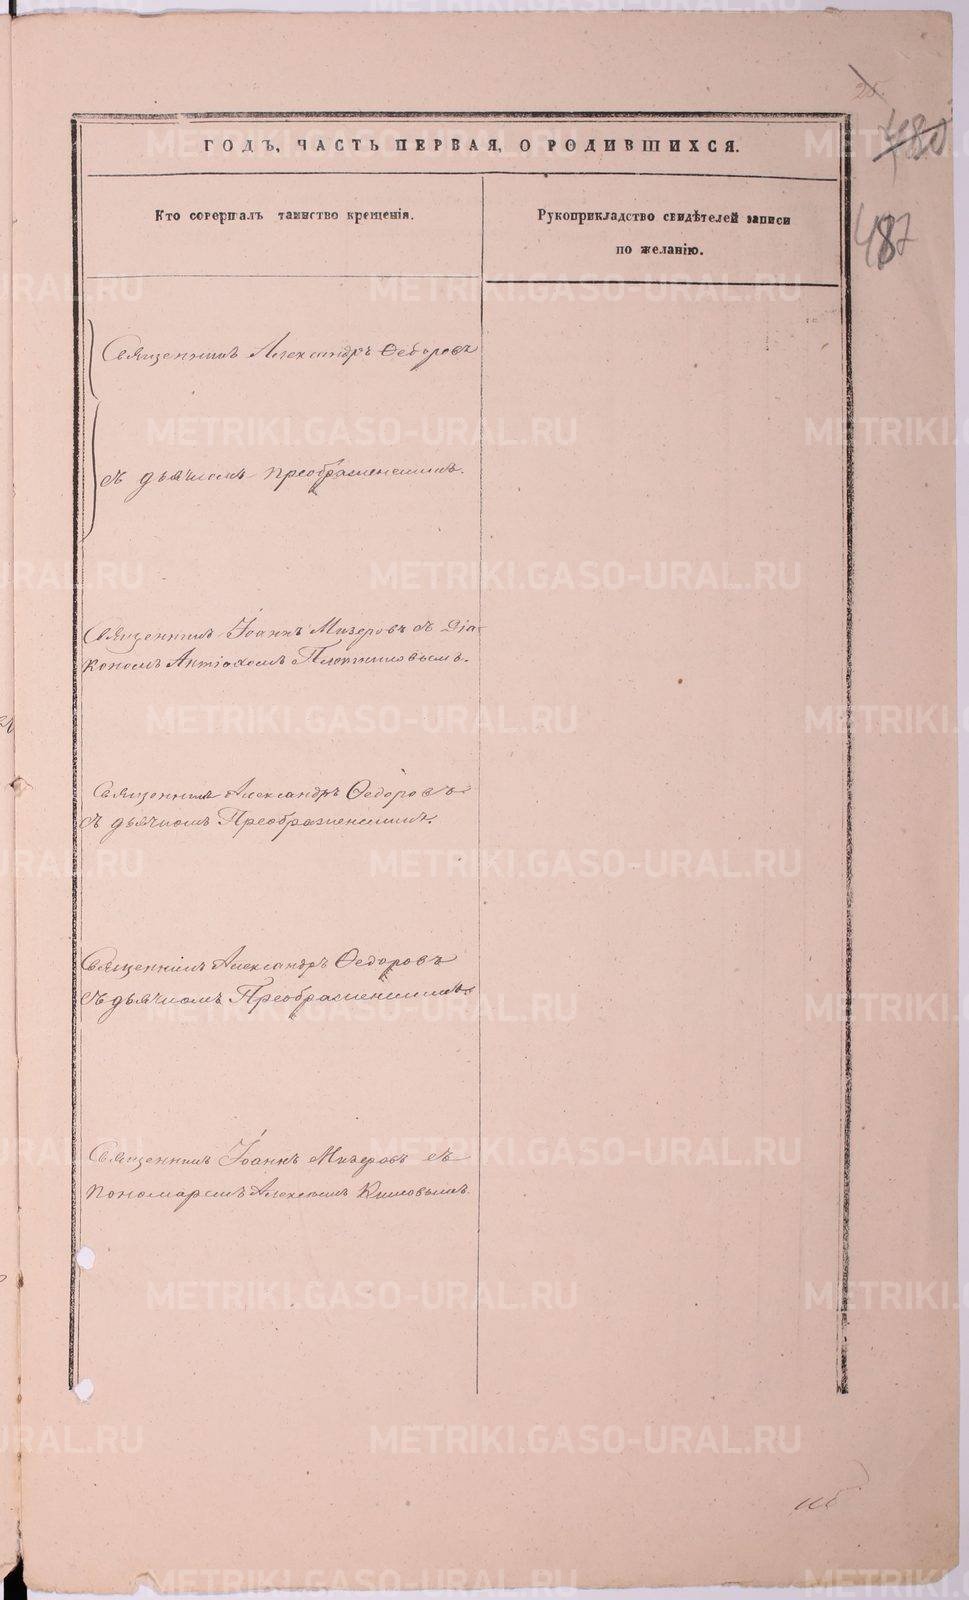 25.
480
487
ГОДЪ, ЧАСТЬ ПЕРВАЯ, О РОДИВШИХСЯ.
Кто совершалъ таинство крещенія.
Рукоприкладство свидѣтелей записи
по желанію.
Священникъ Александръ Ѳедоровъ
съ дьячкомъ Преображенскимъ.
Священникъ Іоаннъ Мизеровъ съ Діа-
кономъ Антіохомъ Плотниковымъ.
Священникъ Александръ Ѳедоровъ
съ дьячкомъ Преображенскимъ.
Священникъ Александръ Ѳедоровъ
съ дьячкомъ Преображенскимъ
Священникъ Іоаннъ Мизеровъ съ
пономаремъ Алексѣемъ
METRIKI.GASO-URAL.RU